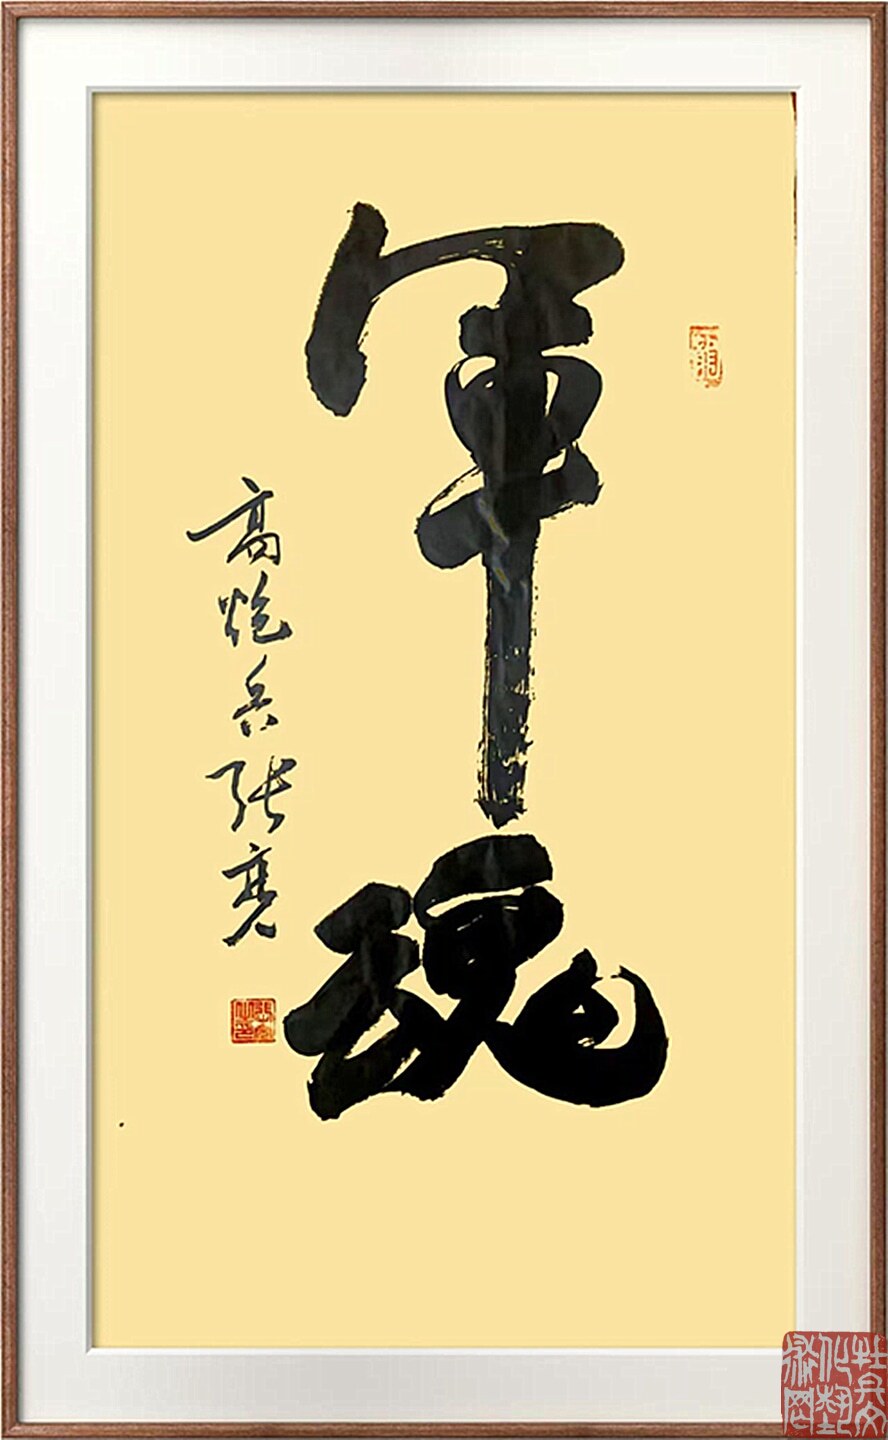 軍魂
高炮兵张亮